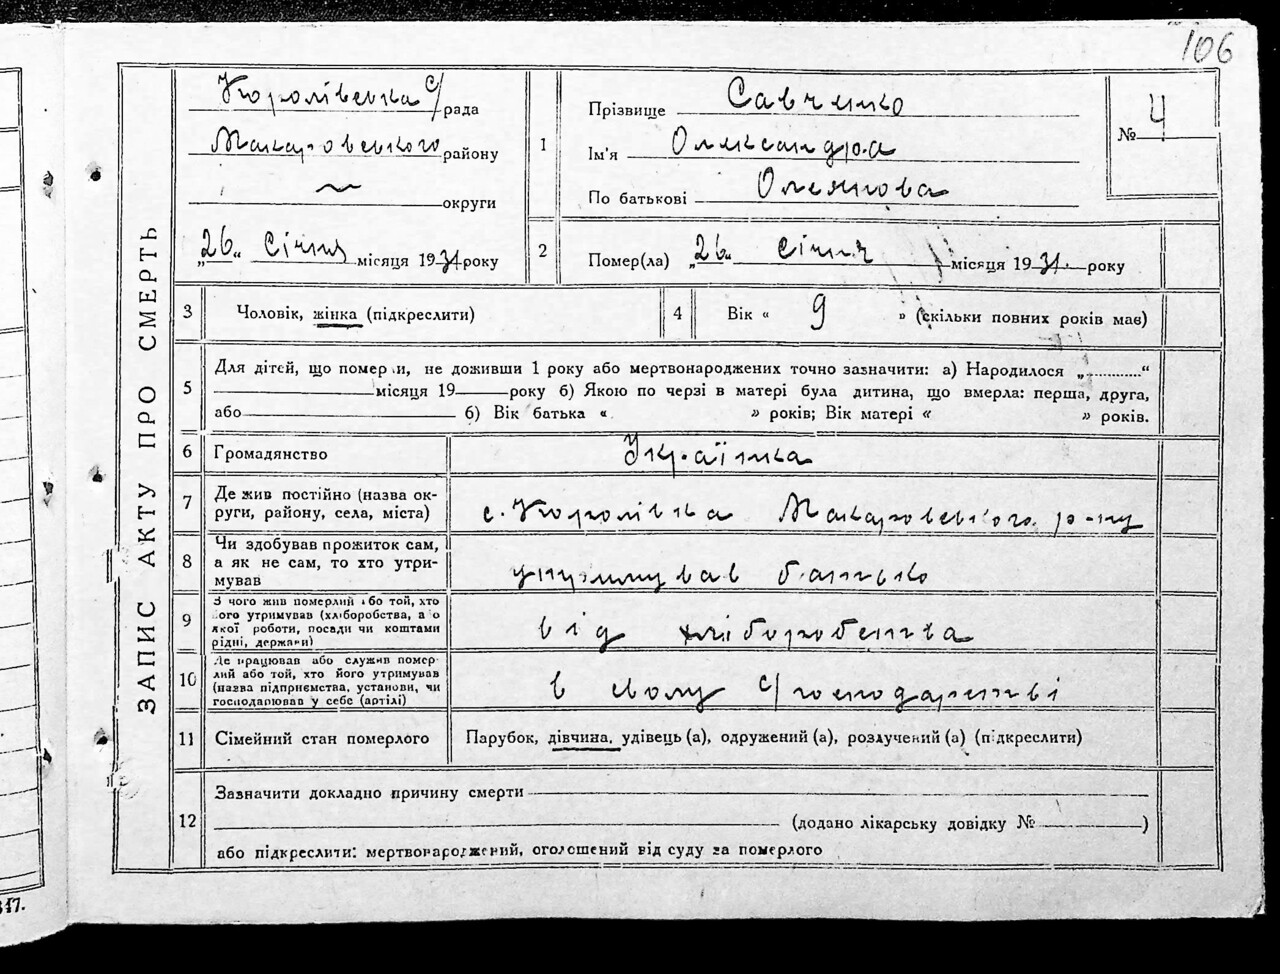 106
ЗАПИС АКТУ ПРО СМЕРТЬ
Королівська с/рада
Макаровського району
~ округи
„26“ Січня місяця 1931 року
1
Прізвище Савченко
Ім'я Олександра
По батькові
№ 4
2 Помер(ла) „26“ Січня місяця 1931. року
3 Чоловік, жінка (підкреслити)
4 Вік « 9 » (скільки повних років має)
5 Для дітей, що померли, не доживши 1 року або мертвонароджених точно зазначити: а) Народилося „............“
місяця 19 року б) Якою по черзі в матері була дитина, що вмерла: перша, друга,
або б) Вік батька « » років; Вік матері « » років.
6 Громадянство Українка
7 Де жив постійно (назва ок-
руги, району, села, міста) с. Королівка Макаровського р-ну
8 Чи здобував прожиток сам,
а як не сам, то хто утри-
мував утримував батько
9 З чого жив померлий або той, хто
його утримував (хліборобства, а о
якої роботи, посади чи коштами
рідні, держави) від хліборобства
10 Де працював або служив помер-
лий або той, хто його утримував
(назва підприємства, установи, чи
господарював у себе (артілі) в свому с/господарстві
11 Сімейний стан померлого Парубок, дівчина, удівець (а), одружений (а), розлучений (а) (підкреслити)
12 Зазначити докладно причину смерти
(додано лікарську довідку № )
або підкреслити: мертвонароджений, оголошений від суду за померлого
317.